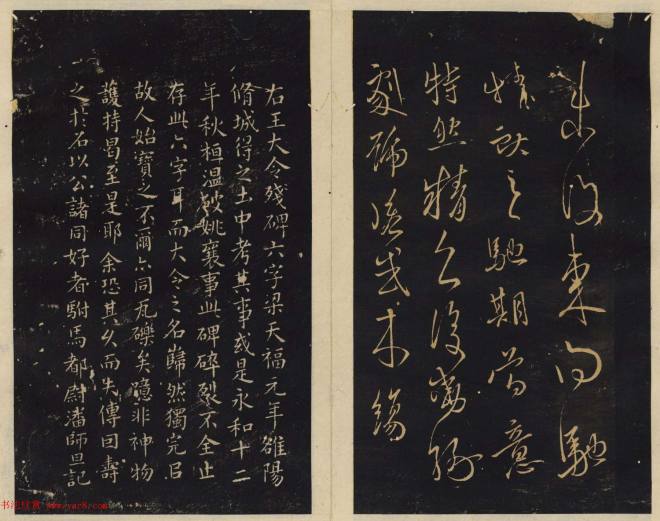 東向馳
獻之馳期當意
特然精復當
劇未
右王大令殘碑六字梁天福元年雒陽
脩城得之土中考其事或是永和十二
年秋桓温破姚襄事此碑碎裂不全止
存此六字耳而大令之名巋然獨完㠯
故人始寶之不爾亦同瓦礫矣臆非神物
護持曷至是耶余恐其久而失傳回壽
之於石以公諸同好者駙馬都尉潘師旦記
书法欣赏 www.yac8.com